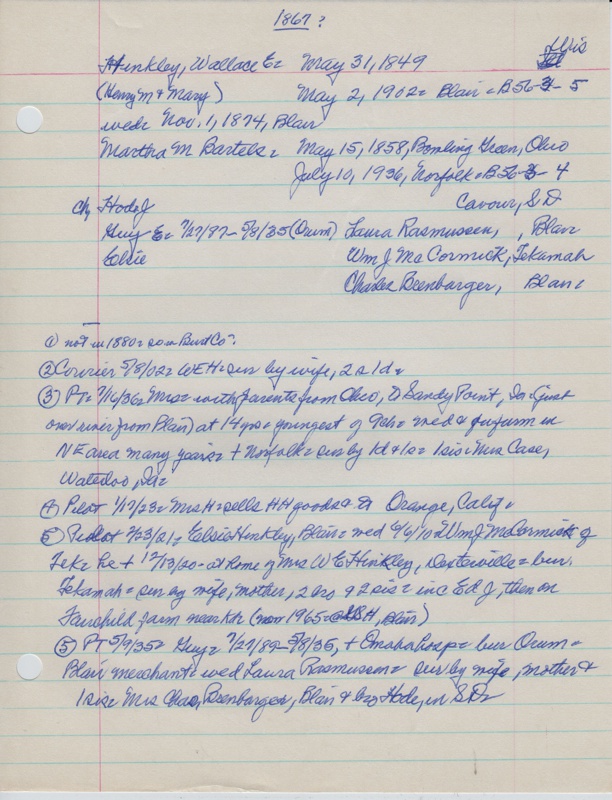 1867?
Wis
Hinkley, Wallace E= May 31, 1849
(Henry M & Mary) May 2, 1902= Blair = B56-3-5
wed= Nov. 1, 1874, Blair
Martha M Bartels= May 15, 1858, Bowling Green, Ohio
July 10, 1936, Norfolk= B56-3-4
Ch, Hode J Cavour, S D
Guy E= 7/27/87- 5/8/35 (Orum) Laura Rasmussen, , Blair
Elsie Wm J MacCormick, Tekamah
Charles Beenbarger, Blair=
① not in 1880= so in Burt Co-?
② Courier 5/8/02= WEH= sur by wife, 2s 1d=
③ PT= 7/16/36= Mrs= with parents from Ohio, to Sandy Point, Ia= (just
over river from Blair) at 14 yrs= youngest of 9ch= wed & farm in
NE area many years= + Norfolk= sur by 1d & 1s= 1sis= Mrs Case,
Waterloo, Ia=
④ Pilot 1/17/23= Mrs H= sells HH goods & to Orange, Calif=
⑤ Pilot 2/23/21= Elsie Hinkley, Blair= wed 9/4/10 Wm J McCormick of
Tek= he + 12/13/20- at home of Mrs W E Hinkley, Dexterville= bur.
Tekamah= sur by wife, mother, 2 bro & 2 sis= inc Ed J, then on
Fairchild farm near (now 1965= H, Blair)
⑤ PT 5/9/35= Guy= 7/27/87-5/8/35, + Omaha hosp= bur Orum=
Blair merchant= wed Laura Rasmussen= sur by wife, mother &
1 sis= Mrs Chas, Beenbarger, Blair & bro Hode, in S D=